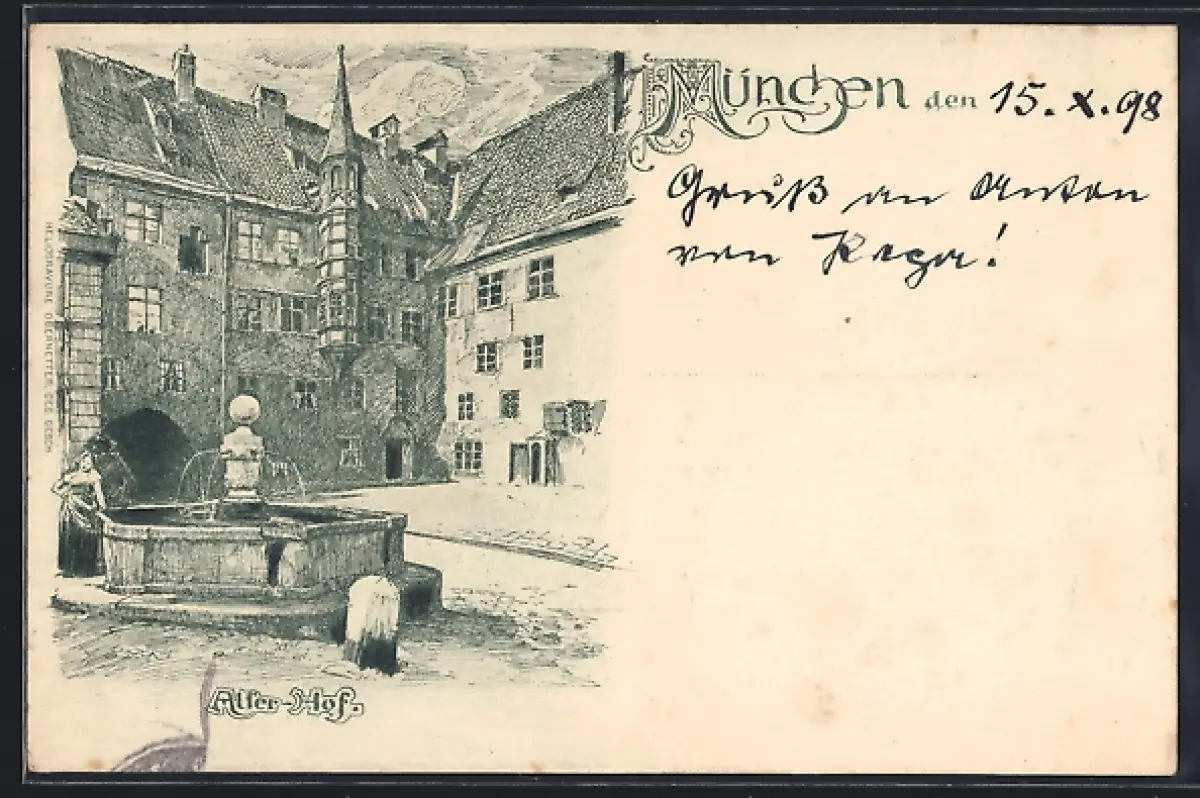 München den 15. X. 98
Gruß an Anton
von
HELIOGRAVURE OBERNETTER. GES. GESCH.
Alter-Hof.